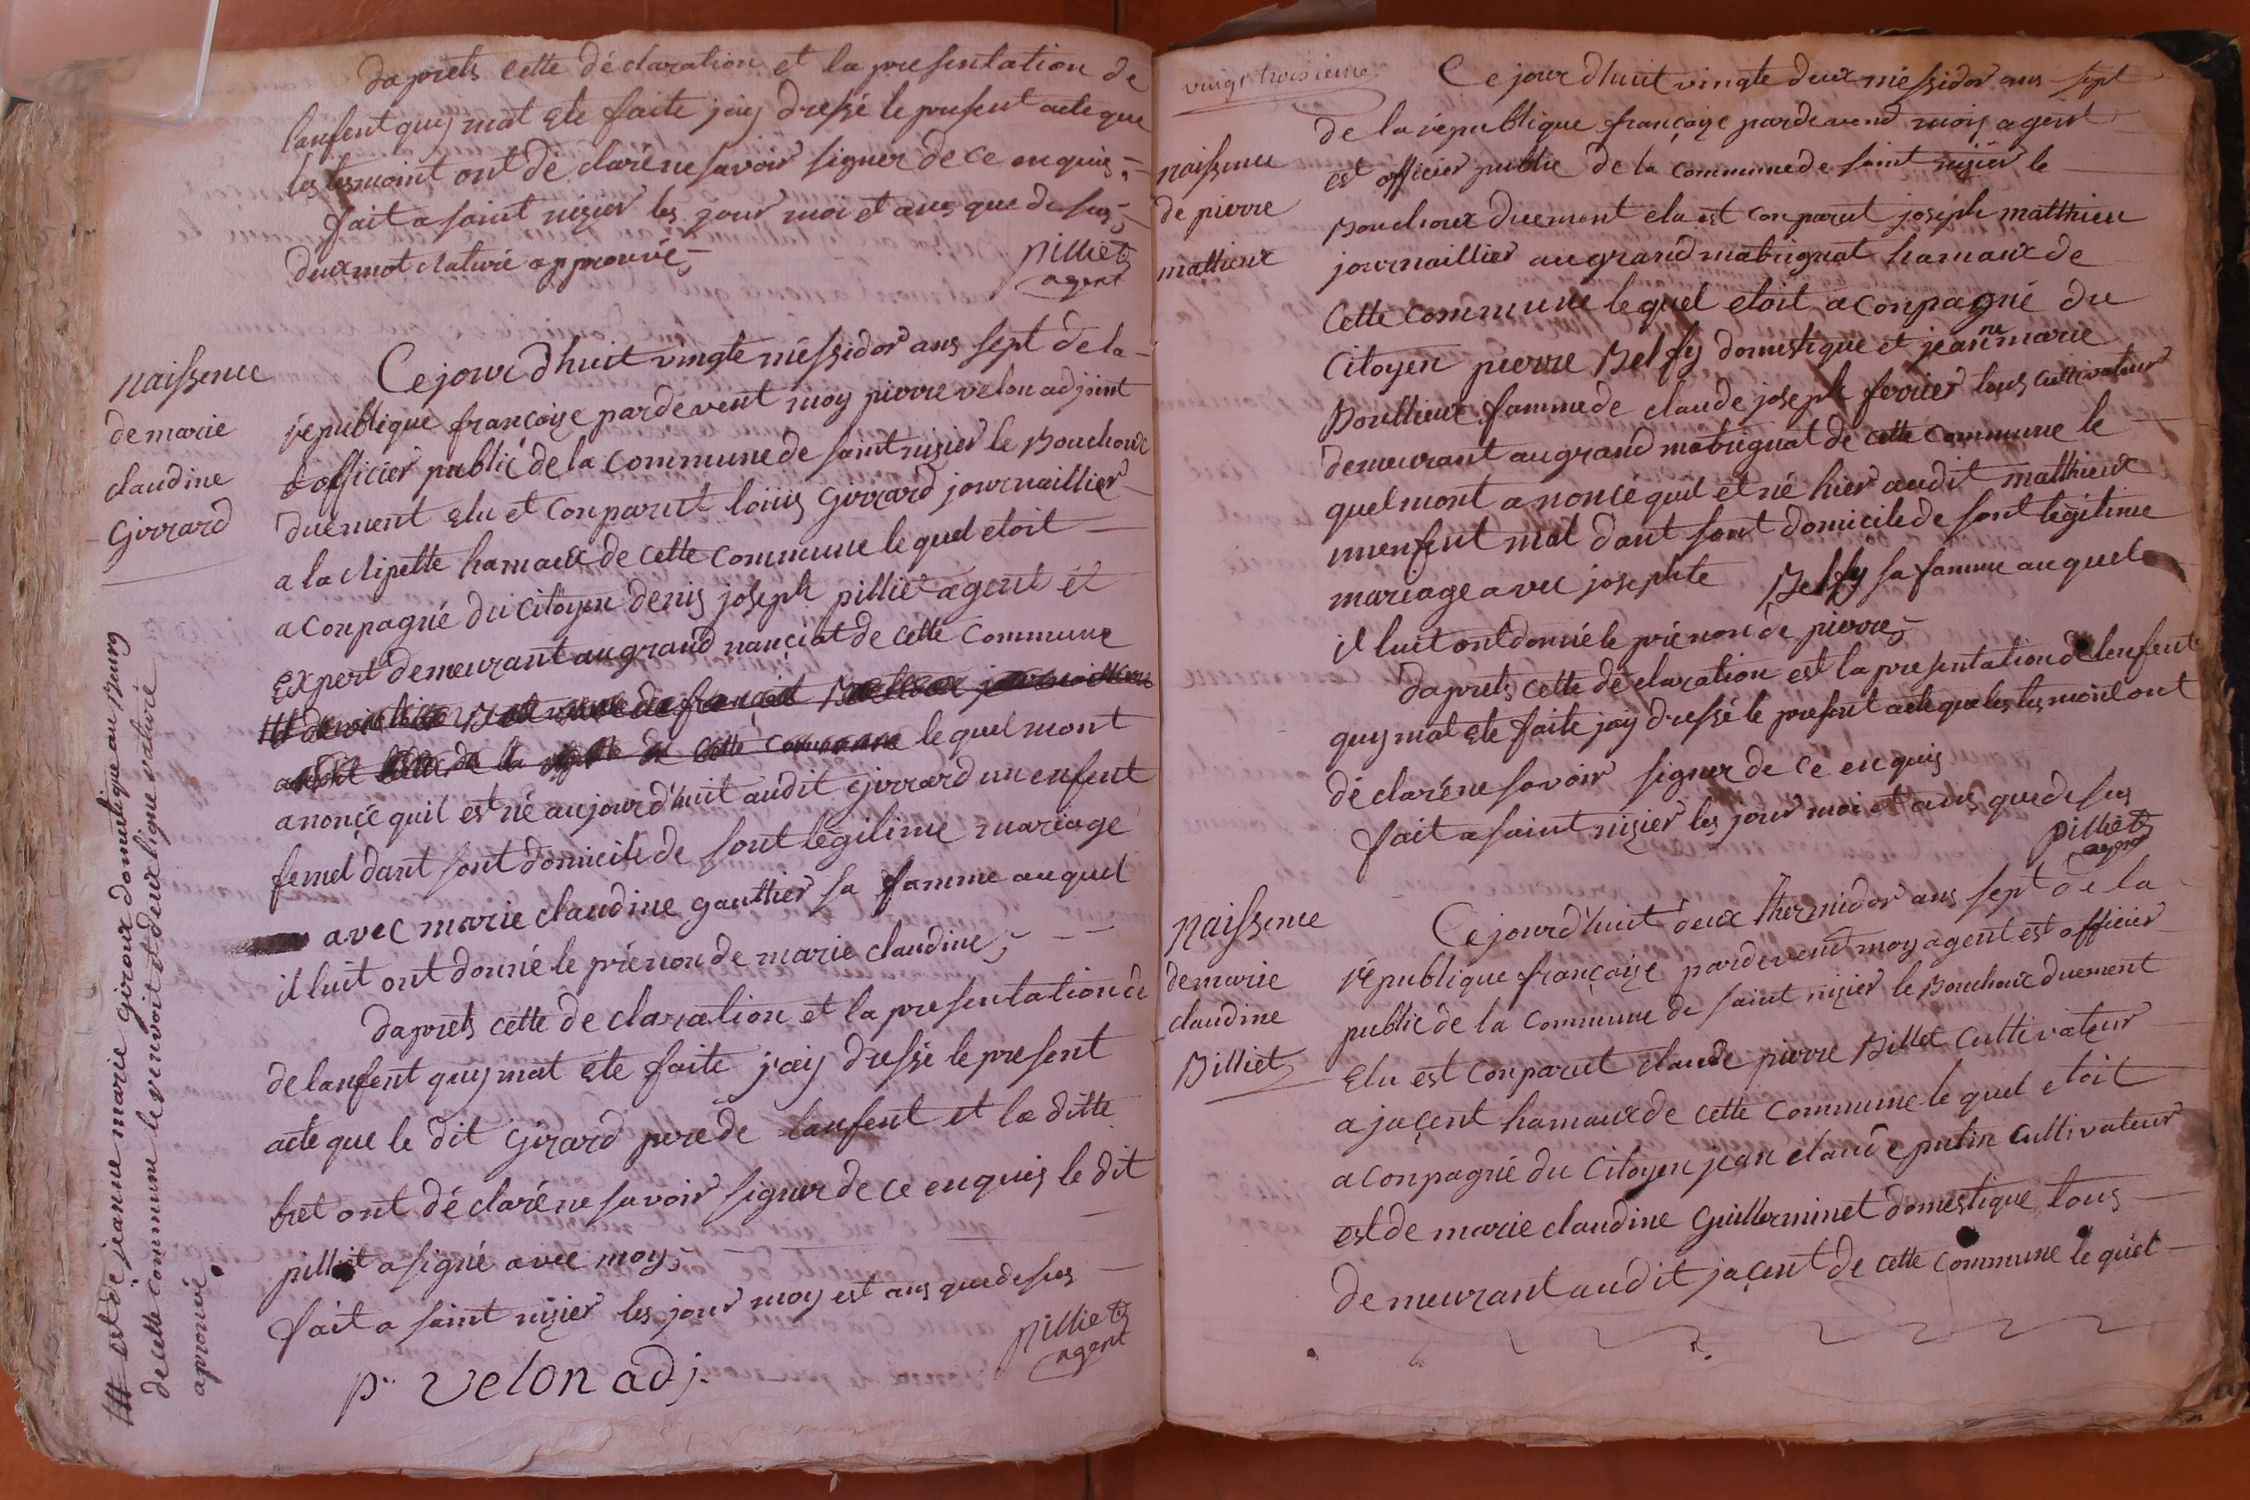 daprets cette déclaration et la presentation de
lanfent quy mat ete faite jay dressé le present acte que
les tesmoint ont dé claré ne savoir signer de ce enquis ;
fait a saint nizier les jour moi et ans que de sus ;
deux mot rature approuvé ;
pilliet
agent
Naissence
de marie
claudine
Girrard
Ce jour dhuit vingte méssidor ans sept de la
république françoize pardevent moy pierre velon adjoint
officier public de la commune de saint nizier le Bouchoux
duement elu et conparut loüis Girrard journaillier
a la clipette hamaux de cette commune le quel etoit
aconpagné du citoyen denis joseph pilliet agent et
expert demeurant au grand nanciat de cette commune
le quel mont
anoncé quil est né aujourdhuit audit Girrard un enfent
femel dant sont domicile de sont legitime mariage
avec marie claudine gauthier sa famme auquel
il luit ont donné le prénon de marie claudine ;
daprets cette de claration et la presentation de
de lanfent quy mat ete faite jay dressé le present
acte que le dit Girard pere de lanfent et la ditte
bret ont dé claré ne savoir signer de ce enquis le dit
pilliet a signé avec moy ;
fait a saint nizier les jour moy est ans que de sus
pilliet
agent
p.. velon adj.
est de jeanne marie giroux domestique au Bourg
de cette commune le renvoit et deux ligne raturé
aprouvé
vingt troisieme
Naissence
de pierre
mathieux
Ce jour dhuit vingte deux méssidor ans sept
de la republique françoize pardevend moiy agent
est officier public de la commune de saint nizier le
Bouchoux duement elu est conparut joseph matthieu
journaillier au grand mabrignat hamaux de
cette commune le quel etoit aconpagné du
citoyen pierre Belfy domestique et jeanne marie
Bouthieux famme de claude joseph ferrier tous cultivateur
demeurant au grand mabrignat de cette commune le
quel mont anoncé quil et né hier audit matthieux
un enfent mal dant sont domicile de sont légitime
mariage avec josephte Belfy sa famme auquel
il luit ont donné le prénon de pierre ;
daprets cette dé claration est la presentation de lenfent
quy mat ete faite jay dressé le present acte que les tesmoint ont
dé claré ne savoir signer de ce enquis
fait a saint nizier les jour moi et ans que de sus
pilliet
agent
Naissence
de marie
claudine
Billiet
Ce jourdhuit deux thermidor ans sept de la
république françoize pardevend moy agent est officier
public de la commune de saint nizier le Bouchoux duement
elu est conparut claude pierre Billet cultivateur
a jaçent hamaux de cette commune le quel etoit
aconpagné du citoyen jean claude putin cultivateur
est de marie claudine Guillerminet domestique tous
demeurant audit jaçent de cette commune le quel